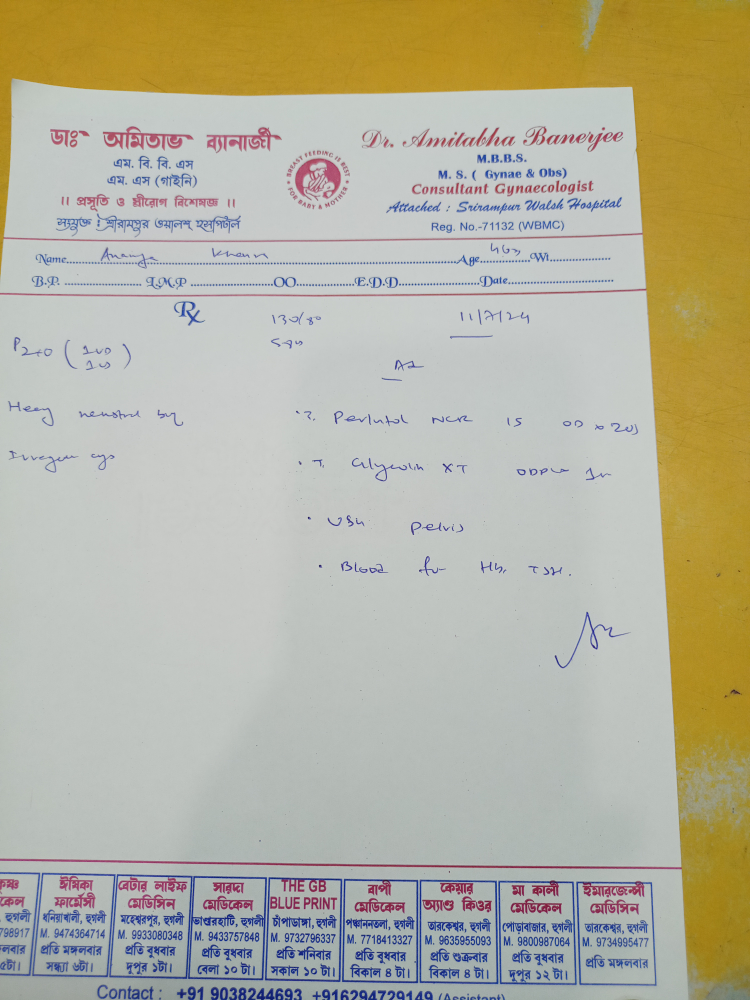 ডাঃ অমিতাভ ব্যানার্জী
এম. বি. বি. এস
এম. এস (গাইনি)
।। প্রসূতি ও স্ত্রীরোগ বিশেষজ্ঞ ।।
সংযুক্ত : শ্রীরামপুর ওয়ালশ্ হসপিটাল
BREAST FEEDING IS BEST
FOR BABY & MOTHER
Dr. Amitabha Banerjee
M.B.B.S.
M. S. ( Gynae & Obs)
Consultant Gynaecologist
Attached : Srirampur Walsh Hospital
Reg. No.-71132 (WBMC)
Name Ananya Age Wt
B.P. L.M.P OO E.D.D Date
Rx 130/80 11/7/24
P2+0
Heavy
OD x 20
T. XT
USG Pelvis
Blood for Hb, TSH.
মেডিকেল
ঈমিকা
ফার্মেসী
ধনিয়াখালী, হুগলী
M. 9474364714
প্রতি মঙ্গলবার
সন্ধ্যা ৬টা।
বেটার লাইফ
মেডিসিন
মহেশ্বরপুর, হুগলী
M. 9933080348
প্রতি বুধবার
দুপুর ১টা।
সারদা
মেডিকেল
ভাণ্ডারহাটি, হুগলী
M. 9433757848
প্রতি বুধবার
বেলা ১০ টা।
THE GB
BLUE PRINT
চাঁপাডাঙ্গা, হুগলী
M. 9732796337
প্রতি শনিবার
সকাল ১০ টা।
বাপী
মেডিকেল
পঞ্চাননতলা, হুগলী
M. 7718413327
প্রতি বুধবার
বিকাল ৪ টা।
কেয়ার
অ্যাণ্ড কিওর
তারকেশ্বর, হুগলী
M. 9635955093
প্রতি শুক্রবার
বিকাল ৪ টা।
মা কালী
মেডিকেল
পোড়াবাজার, হুগলী
M. 9800987064
প্রতি বুধবার
দুপুর ১২ টা।
ইমারজেন্সী
মেডিসিন
তারকেশ্বর, হুগলী
M. 9734995477
প্রতি মঙ্গলবার
Contact : +91 9038244693, +916294729149 (Assistant)